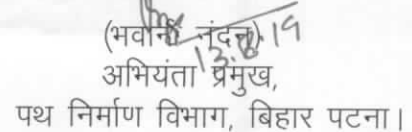 (भवानी नंदन)
13.8.19
अभियंता प्रमुख,
पथ निर्माण विभाग, बिहार पटना।